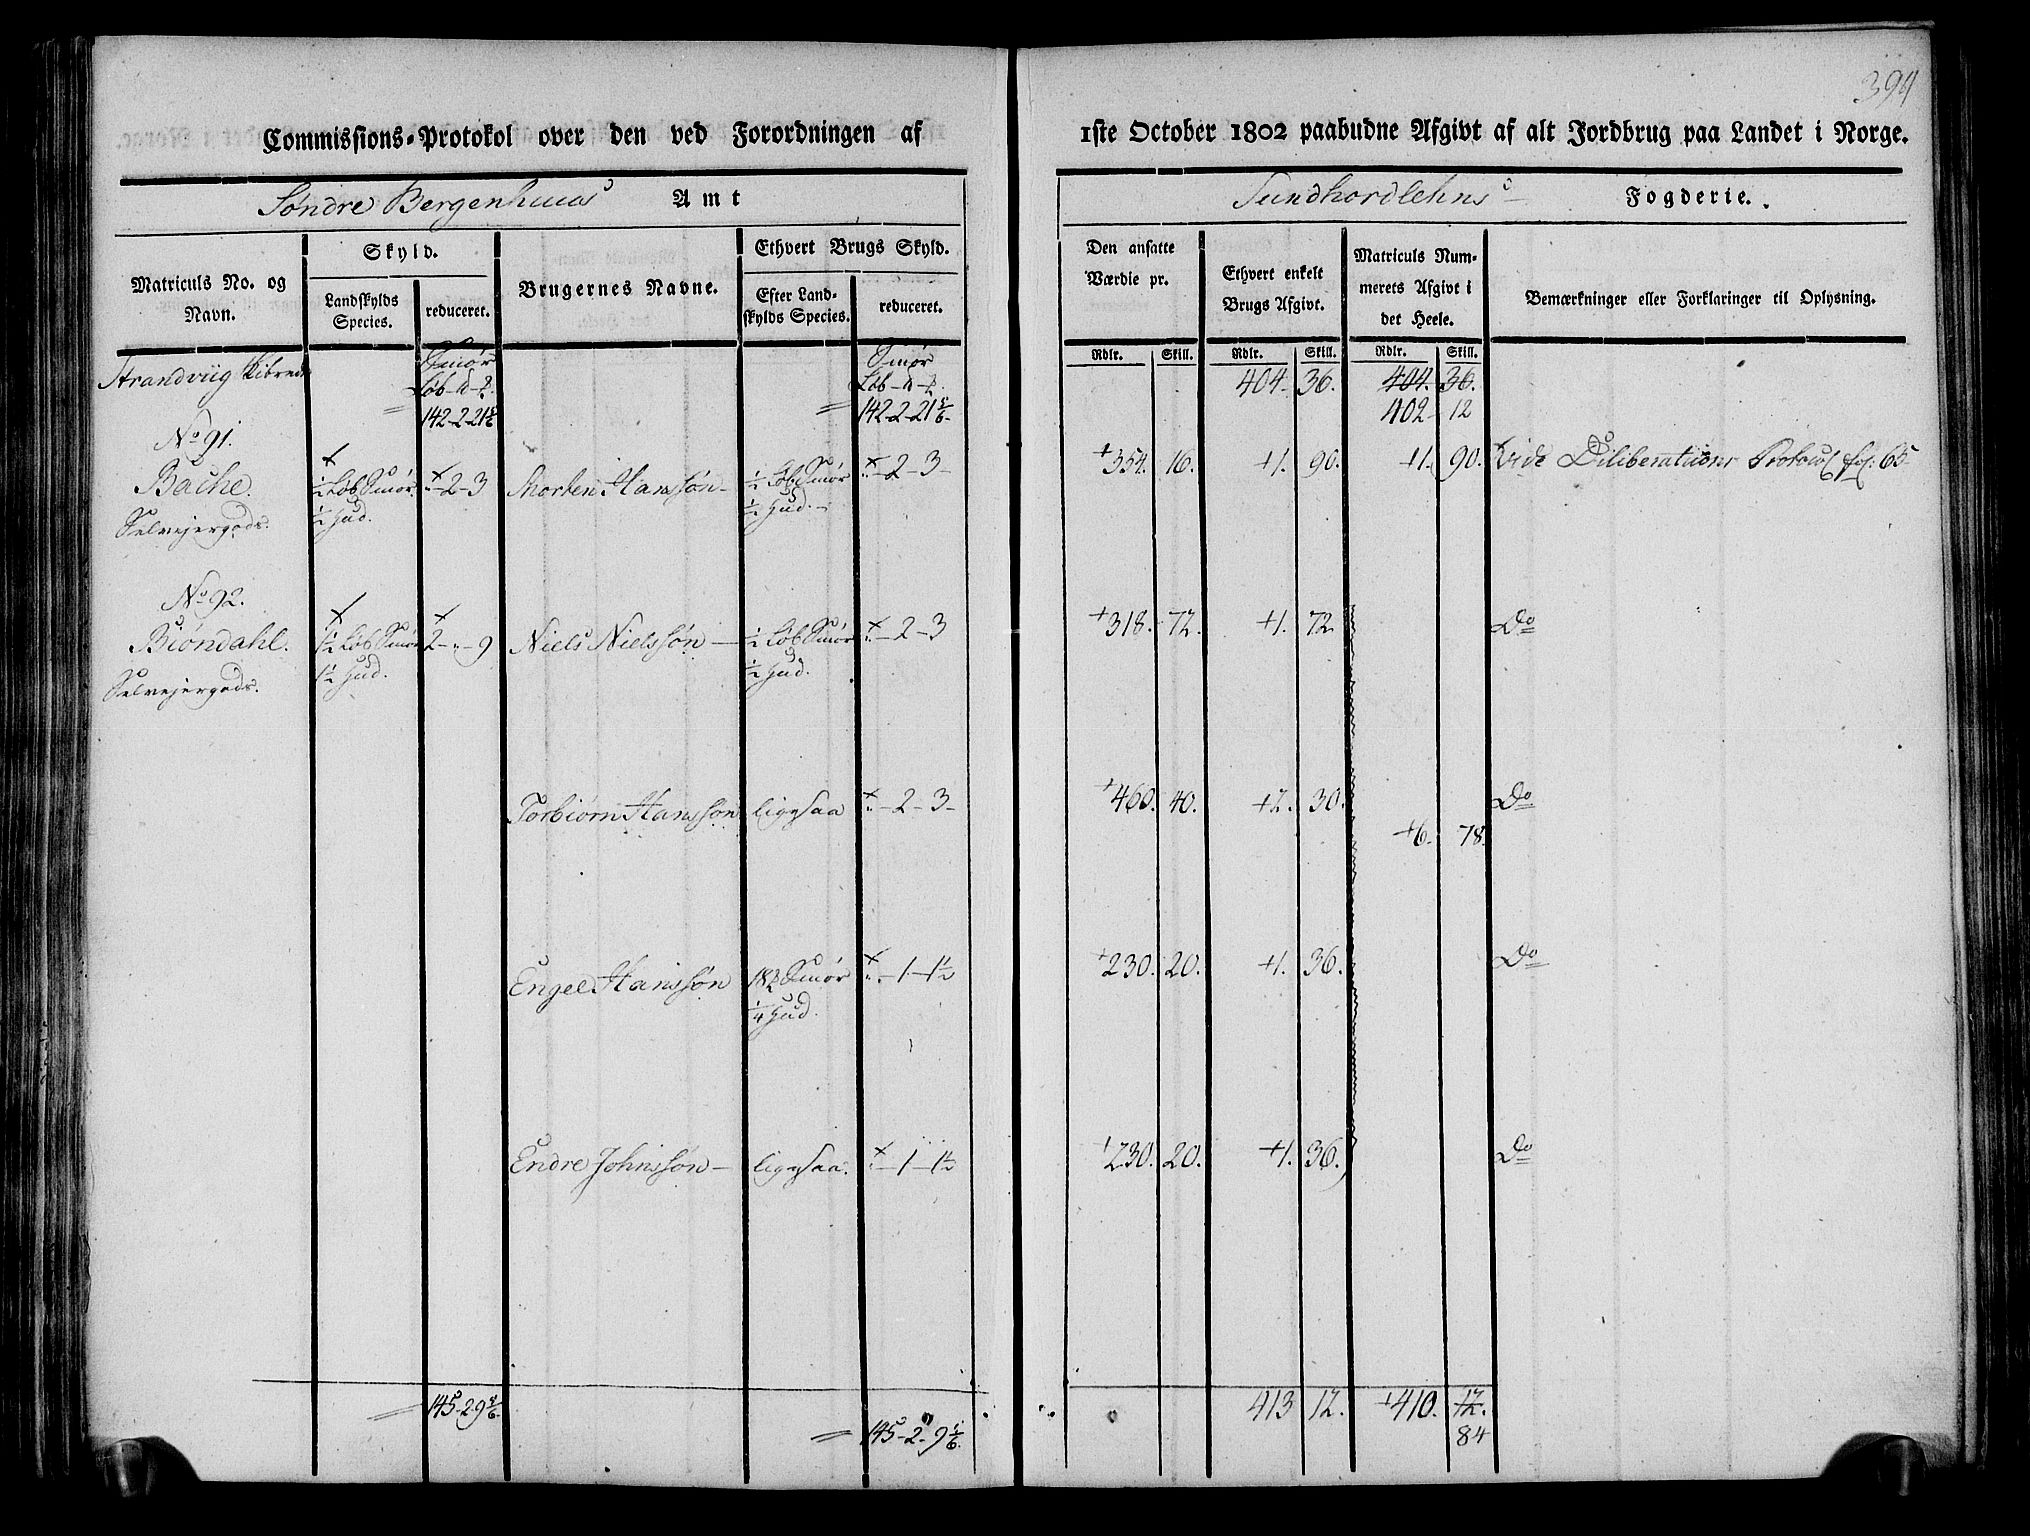 394
Commissions-Protokol over den ved Forordningen af 1ste October 1802 paabudne Afgivt af alt Jordbrug paa Landet i Norge.
Søndre Bergenhuus Amt
Sundhordlehns Fogderie.
Matriculs No. og Navn.
Skyld.
Landskylds Species.
reduceret.
Brugernes Navne.
Ethvert Brugs Skyld.
Efter Landskylds Species.
reduceret.
Den ansatte Værdie pr.
Ethvert enkelt Brugs Afgivt.
Matriculs Nummerets Afgivt i det Heele.
Bemærkninger eller Forklaringer til Oplysning.
Rdlr. Skill. Rdlr. Skill. Rdlr. Skill.
Strandviig Skibrede Smør Smør
Løb Løb 404. 36. 404. 36.
142-2-21 5/6 142-2-21 5/6 402 12
No 91.
Bache. 1/2 Løb Smør "-2-3 Morten Hanssøn - 1/2 Løb Smør "-2-3- +354. 16. +1. 90. +1. 90. Vide Diliberations Protocol fol: 65
Selvejergods. 1/2 Hud. 1/2 Hud. -
No 92.
Biøndahl. 1 1/2 Løb Smør 2-"-9 Niels Nielssøn - 1/2 Løb Smør "-2-3 +318. 72. +1. 72 Do
Selvejergods. 1 1/2 Hud. 1/2 Hud.
Torbiørn Hanssøn ligesaa "-2-3- +460. 40. +2. 30. Do
+6. 78.
Engel Hanssøn 18 Smør "-1-1 1/2 +230. 20. +1. 36. Do
1/4 Hud.
Endre Johnssøn - ligesaa. "-1-1 1/2 +230. 20. +1. 36. Do
145-2-9 5/6 413 12. +410. 12.
145-2-9 5/6. 84